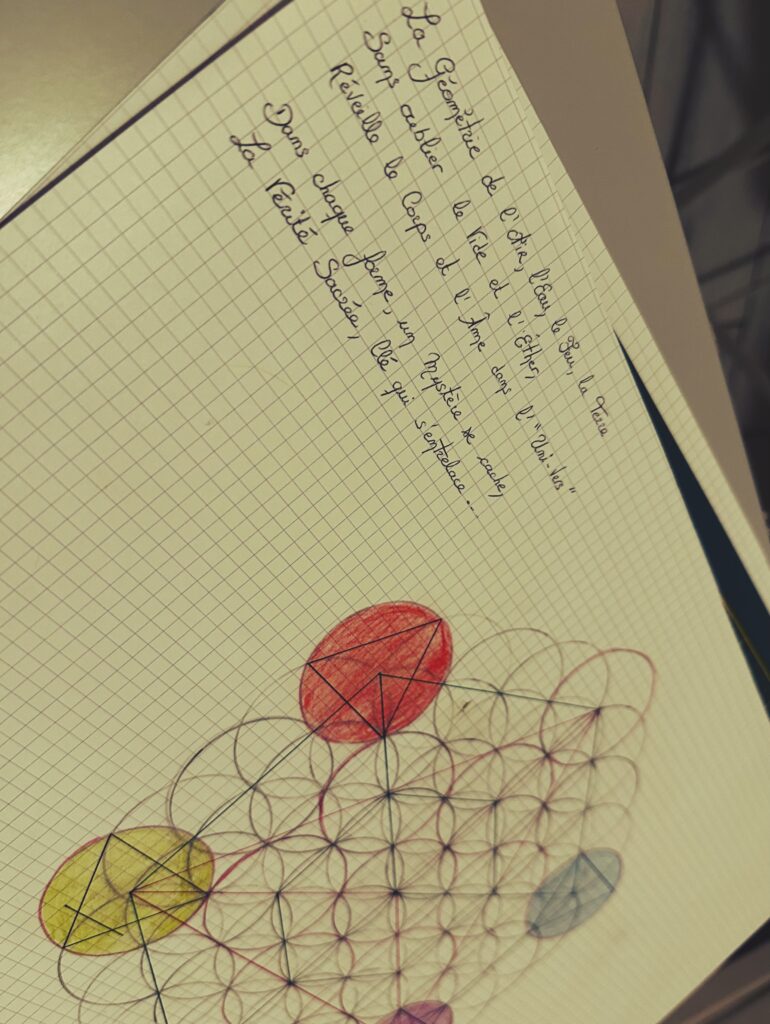 La Géométrie de l'Air, l'Eau, le Feu, la Terre
Sans oublier le Vide et l'Éther,
Réveille le Corps et l'Âme dans l'"Uni-Vers"
Dans chaque forme, un mystère se cache,
La Vérité Sacrée, Clé qui s'entrelace...